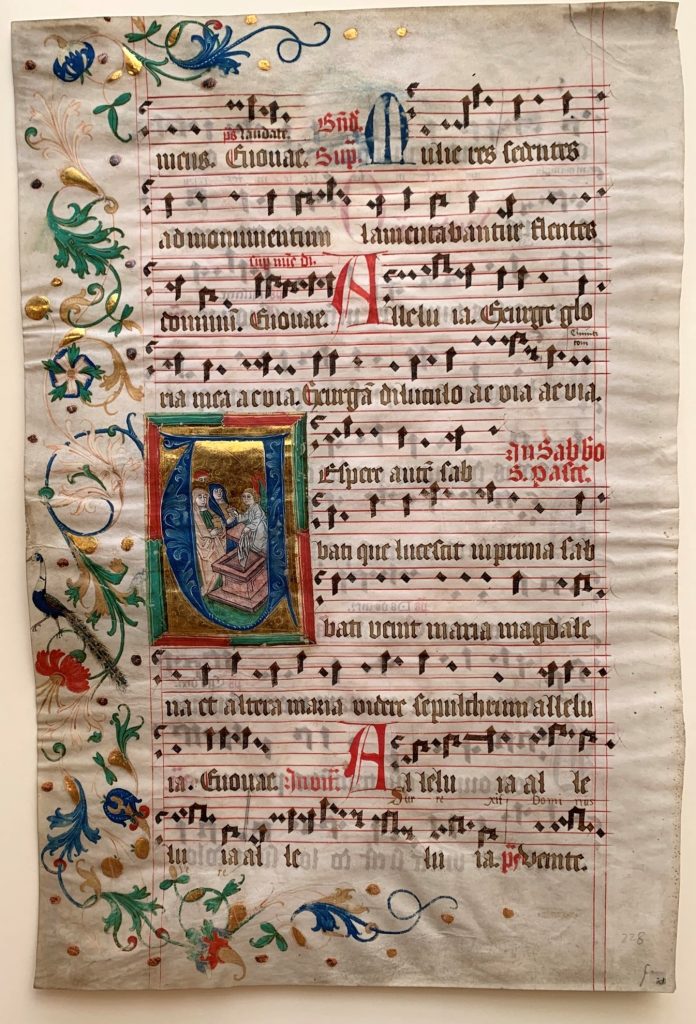 ps laudate. Bnd.
meus. Euouae. Sup. Mulie res sedentes
ad monumentum lamentabantur flentes
cup
dominum. Euouae. Allelu ia. Exurge glo
ria mea aevia. Exurgā diluculo ae via ae via.
Vespere autē sab In Sabbo
S. Pasce.
bati que lucescit in prima sab
bati venit maria magdale
na et altera maria videre sepulchrum allelu
ia. Euouae. Invit. Al lelu ia al le
Sur re xit Domi nus
lu ia al le lu ia. ps venite.
re
228